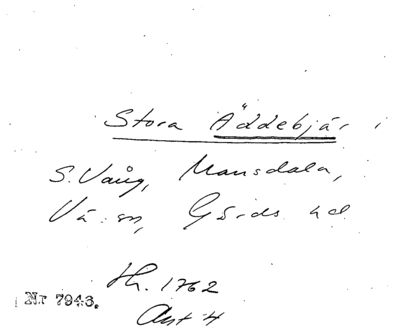 Stora Äddebjär
S. Vång, Mansdala,
Vä sn, Gärds hd
Hr. 1762
Akt 4
Nr 7943.